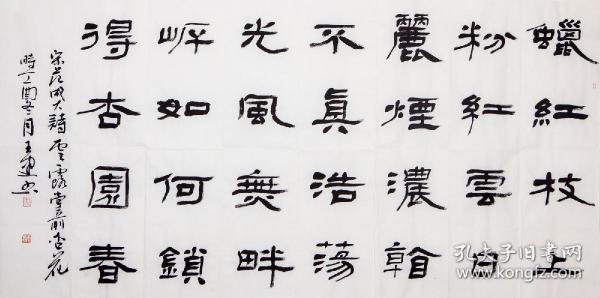 蠟紅枝上
粉紅雲日
麗煙濃看
不眞浩蕩
光風無畔
岸如何鎖
得杏園春
宋范成大詩云露堂前杏花
時丁酉冬月王
孔夫子旧书网
www.kongfz.com